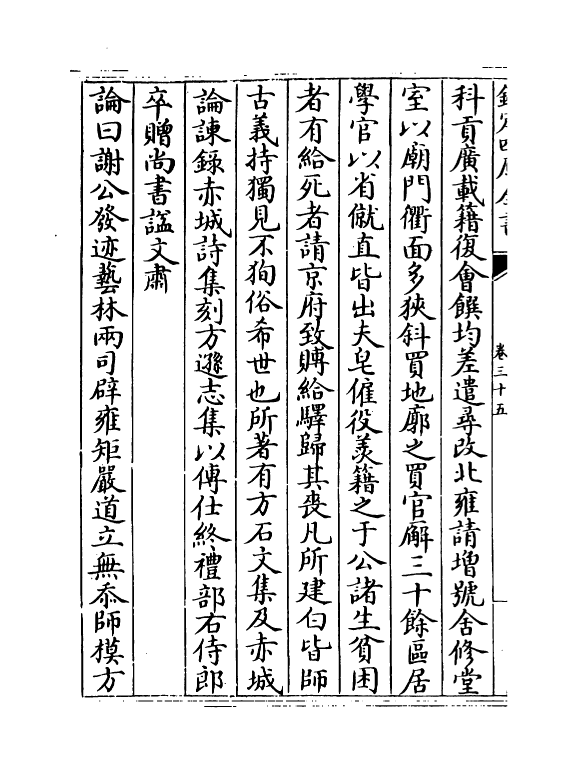 欽定四庫全書
卷三十五
科貢廣載籍復會饌均差遣尋改北雍請增號舍修堂
室以廟門衢面多狹斜買地廓之買官廨三十餘區居
學官以省僦直皆出夫皂僱役羨籍之于公諸生貧困
者有給死者請京府致賻給驛歸其喪凡所建白皆師
古義持獨見不狥俗希世也所著有方石文集及赤城
論諫録赤城詩集刻方遜志集以傳仕終禮部右侍郎
卒贈尚書諡文肅
論曰謝公發迹藝林兩司辟雍矩嚴道立無忝師模方